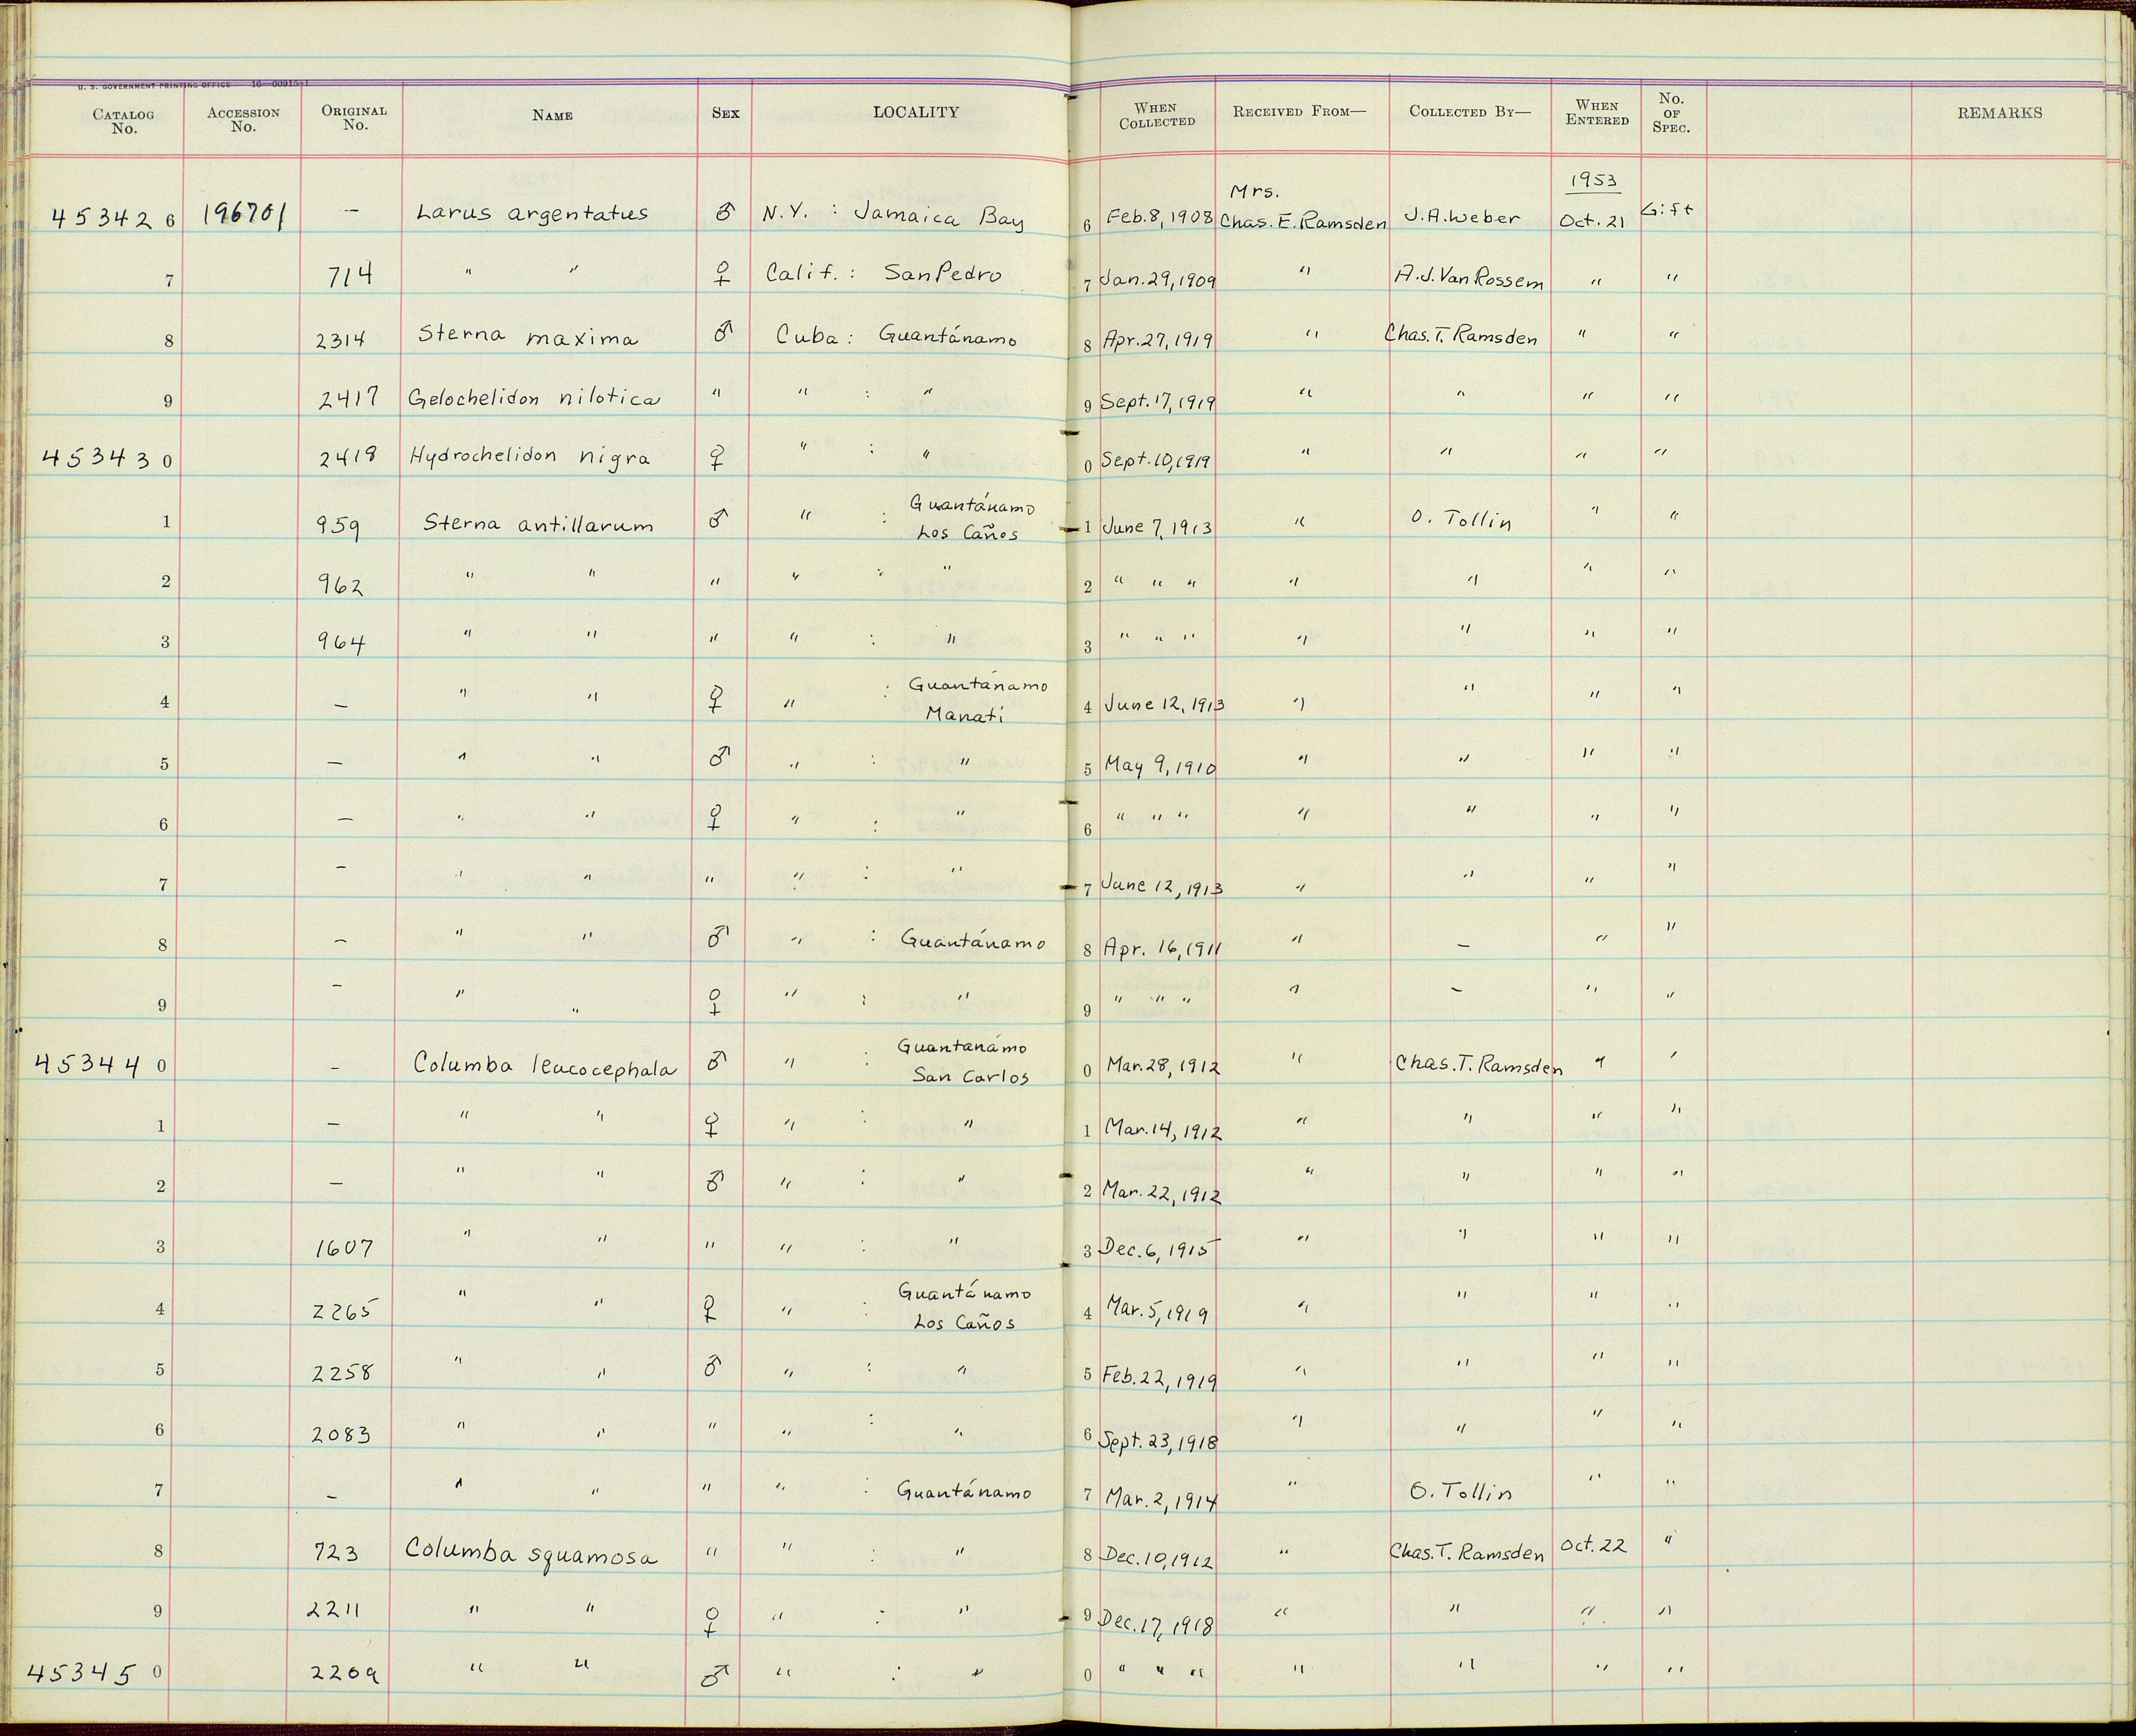 U. S. GOVERNMENT PRINTING OFFICE 16—60915-1
CATALOG No. ACCESSION No. ORIGINAL No. NAME SEX LOCALITY WHEN COLLECTED RECEIVED FROM— COLLECTED BY— WHEN ENTERED No. OF SPEC. REMARKS
453426 196701 — Larus argentatus ♂ N.Y. : Jamaica Bay 6 Feb. 8, 1908 Mrs. Chas. E. Ramsden J.A. Weber 1953 Oct. 21 Gift
7 714 " " ♀ Calif. : San Pedro 7 Jan. 29, 1909 " A.J. Van Rossem " "
8 2314 Sterna maxima ♂ Cuba : Guantánamo 8 Apr. 27, 1919 " Chas. T. Ramsden " "
9 2417 Gelochelidon nilotica " " : " 9 Sept. 17, 1919 " " " "
453430 2418 Hydrochelidon nigra ♀ " : " 0 Sept. 10, 1919 " " " "
1 959 Sterna antillarum ♂ " : Guantánamo Los Caños 1 June 7, 1913 " O. Tollin " "
2 962 " " " " : " 2 " " " " " " "
3 964 " " " " : " 3 " " " " " " "
4 — " " ♀ " : Guantánamo Manatí 4 June 12, 1913 " " " "
5 — " " ♂ " : " 5 May 9, 1910 " " " "
6 — " " ♀ " : " 6 " " " " " " "
7 — " " " " : " 7 June 12, 1913 " " " "
8 — " " ♂ " : Guantánamo 8 Apr. 16, 1911 " — " "
9 — " " ♀ " : " 9 " " " " — " "
453440 — Columba leucocephala ♂ " : Guantanámo San Carlos 0 Mar. 28, 1912 " Chas. T. Ramsden " "
1 — " " ♀ " : " 1 Mar. 14, 1912 " " " "
2 — " " ♂ " : " 2 Mar. 22, 1912 " " " "
3 1607 " " " " : " 3 Dec. 6, 1915 " " " "
4 2265 " " ♀ " : Guantánamo Los Caños 4 Mar. 5, 1919 " " " "
5 2258 " " ♂ " : " 5 Feb. 22, 1919 " " " "
6 2083 " " " " : " 6 Sept. 23, 1918 " " " "
7 — " " " " : Guantánamo 7 Mar. 2, 1914 " O. Tollin " "
8 723 Columba squamosa " " : " 8 Dec. 10, 1912 " Chas. T. Ramsden Oct. 22 "
9 2211 " " ♀ " : " 9 Dec. 17, 1918 " " " "
453450 2209 " " ♂ " : " 0 " " " " " " "